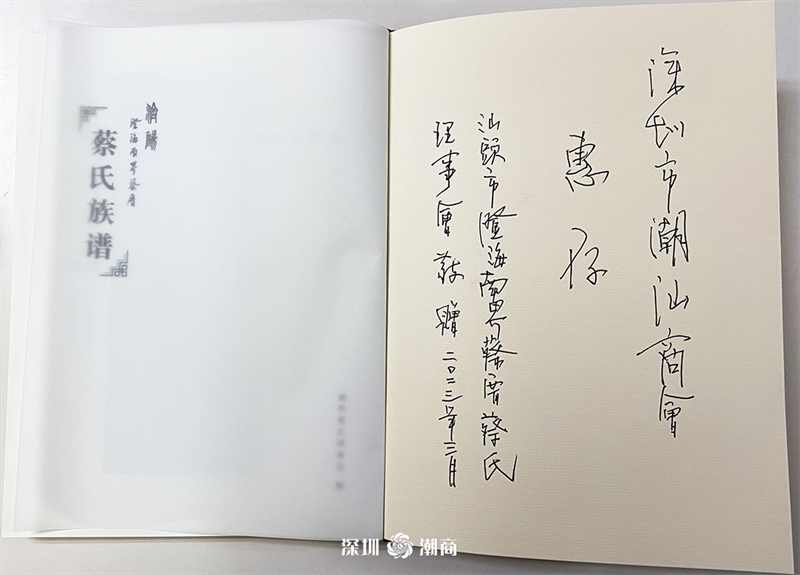 濟陽
澄海南界蔡厝
蔡氏族谱
深圳市潮汕商會
惠存
汕頭市澄海南界蔡厝蔡氏
理事會 敬贈 二〇二三年三月
深圳 潮商